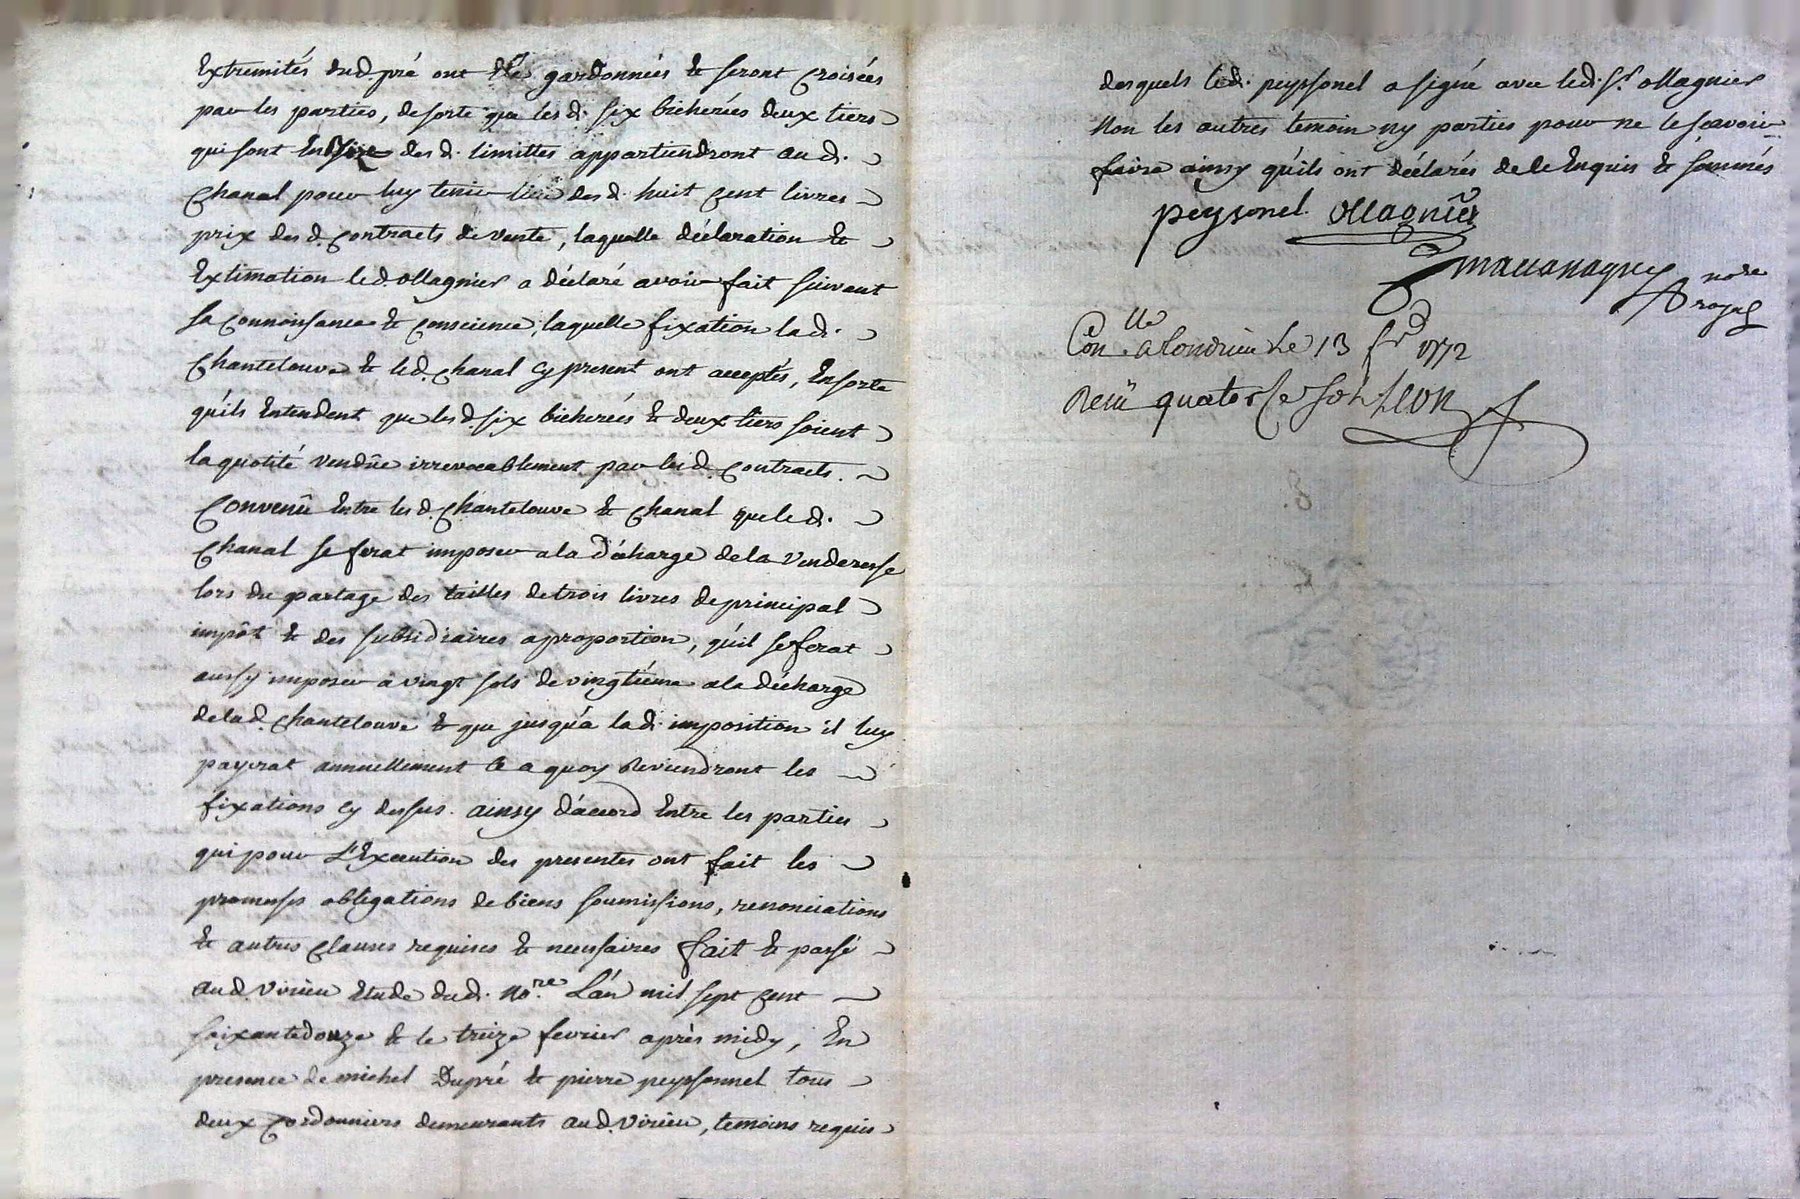 Extremités dud. pré ont été gardonnées & seront croisées
par les parties, de sorte que lesd. six bicherées deux tiers
qui sont des d. limittes appartiendront aud.
Chanal pour luy tenir lieu des d. huit cent livres
prix des d. contracts de vente, laquelle déclaration &
Extimation led. ollagnier a déclaré avoir fait suivant
sa connoissance & conscience, laquelle fixation lad.
Chantelouve & led. chanal cy present ont acceptés, Ensorte
qu'ils Entendent que lesd. six bicherées & deux tiers soient
la quotité vendûe irrevocablement par lesd. contracts.
Convenû Entre lesd. Chantelouve & Chanal que led.
Chanal se ferat imposer a la décharge de la Venderesse
lors du partage des tailles de trois livres de principal
impôt & des subsidiaires a proportion, qu'il se ferat
aussy imposer à vingt sols de vingtiéme a la décharge
de lad. Chantelouve & que jusqu'a lad. imposition il luy
payerat annuellement ce a quoy Reviendront les
fixations cy dessus. ainsy d'accord Entre les parties
qui pour L'Execution des presentes ont fait les
promesses obligations de biens soumissions, renonciations
& autres clauses requises & necessaires fait & passé
aud. Virieu Etude dud. no.re L'an mil sept cent
soixante douze & le treize fevrier après midy, En
presence de michel Dupré & pierre peyssonnel tous
deux cordonniers demeurants aud. Virieu, temoins requis
desquels led. peyssonel a signé avec led. Sr. ollagnier
Non les autres temoin ny parties pour ne le sçavoir
faire ainsy qu'ils ont déclarés de le Enquis & sommés
peysonel. Ollagnier
nore
royal
Con.lle a Condrieu Le 13 fr. 1772
Reçu quatorze sols Leon